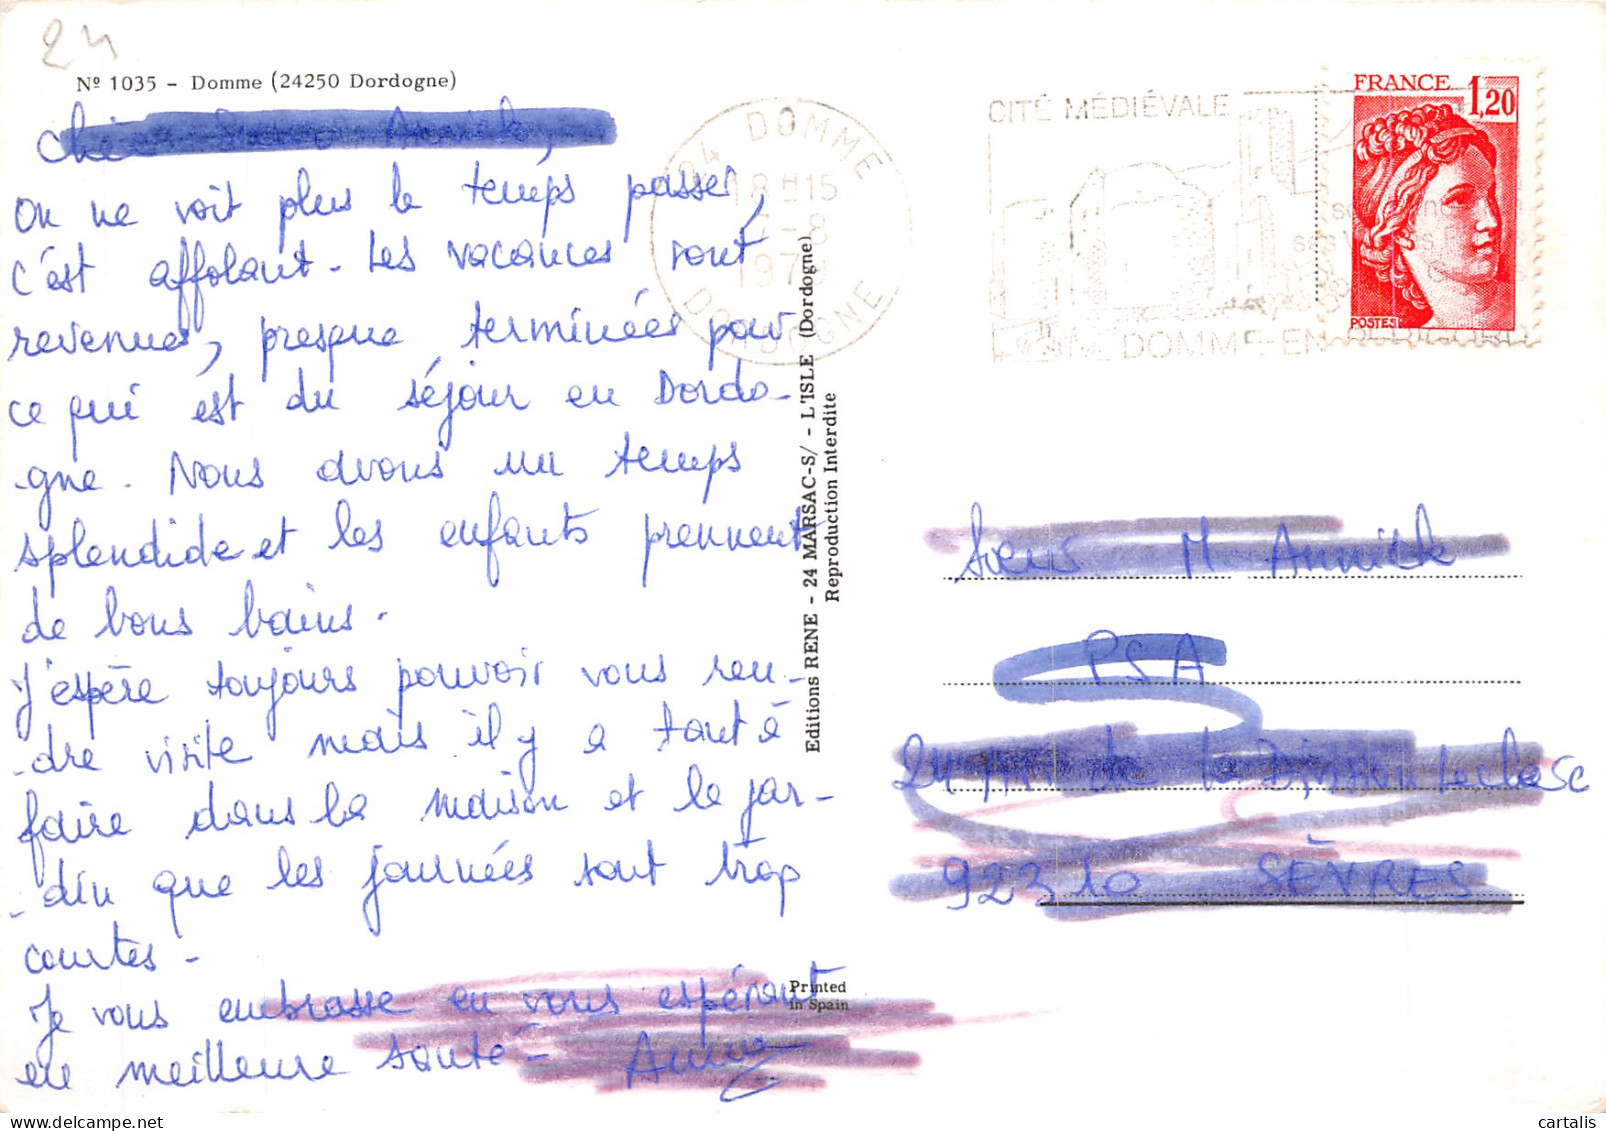 24
Nº 1035 – Domme (24250 Dordogne)
Annick,
On ne voit plus le temps passer,
c'est affolant - Les vacances sont
revenues, presque terminées pour
ce qui est du séjour en Dordo-
-gne. Nous avons un temps
splendide et les enfants prennent
de bons bains.
J'espère toujours pouvoir vous ren-
-dre visite mais il y a tant à
faire dans la maison et le jar-
-din que les journées sont trop
courtes -
Je vous embrasse en vous espérant
en meilleure santé - Anne
Editions RENE - 24 MARSAC-S/ - L'ISLE (Dordogne)
Reproduction Interdite
Printed
in Spain
24 DOMME
18 H 15
-8
197
DORDOGNE
CITÉ MÉDIÉVALE
DOMME-EN
FRANCE 1,20
POSTES
Sœur M. Annick
PSA
24 de la Division Leclerc
92310 SÈVRES
cartalis